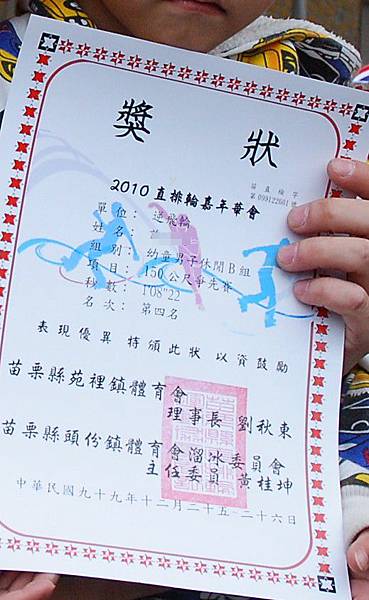 獎狀
苗直檢字
第099122601號
2010直排輪嘉年華會
單位：逆飛輪
姓名：
組別：幼童男子休閒B組
項目：150公尺爭先賽
秒數：1'08"22
名次：第四名
表現優異 特頒此狀 以資鼓勵
苗栗縣苑裡鎮體育會
理事長 劉秋東
苗栗縣頭份鎮體育會溜冰委員會
主任委員 黃桂坤
中華民國九十九年十二月二十五、二十六日